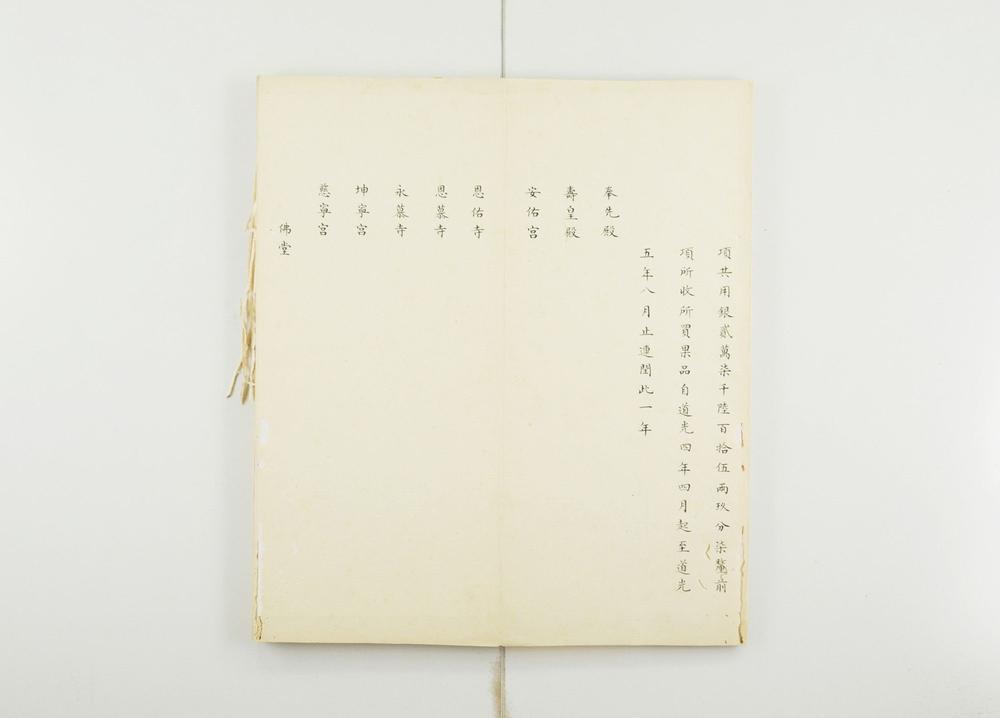 項共用銀貳萬柒千陸百拾伍兩玖分柒釐前
項所收所買果品自道光四年四月起至道光
五年八月止連閏此一年
奉先殿
壽皇殿
安佑宮
恩佑寺
恩慕寺
永慕寺
坤寧宮
慈寧宮
佛堂